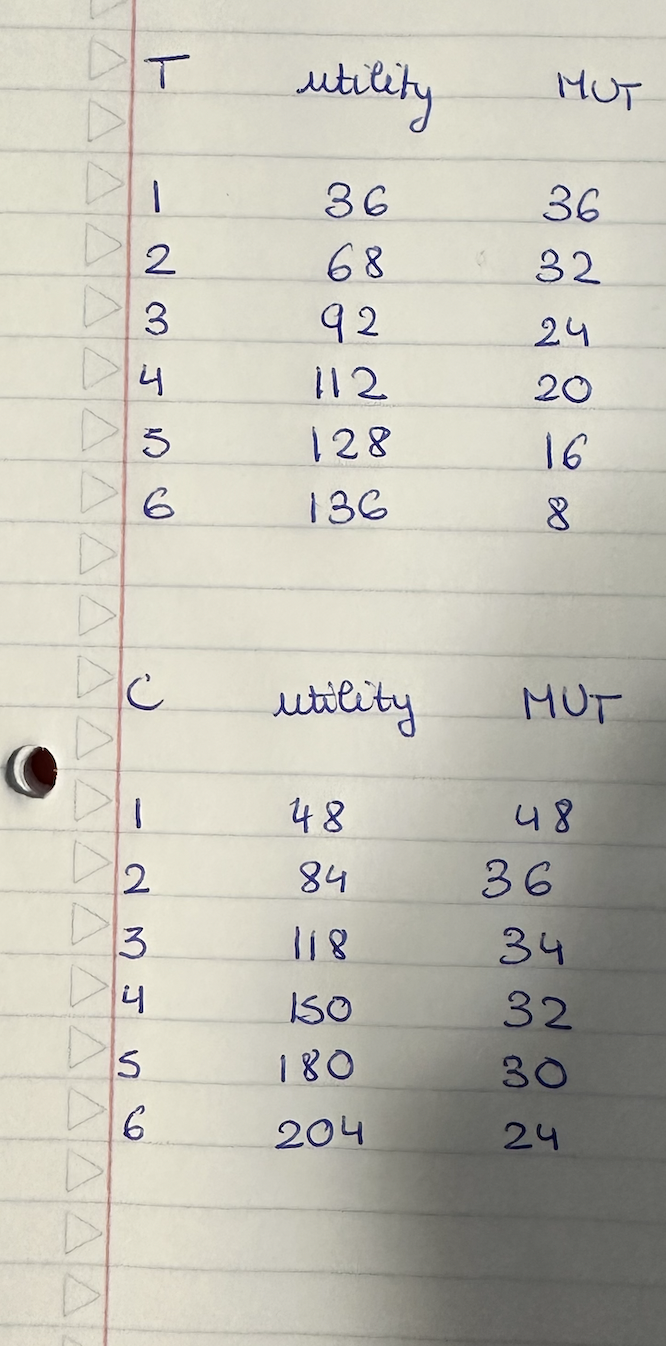 T utility MUT
1 36 36
2 68 32
3 92 24
4 112 20
5 128 16
6 136 8
C utility MUT
1 48 48
2 84 36
3 118 34
4 150 32
5 180 30
6 204 24